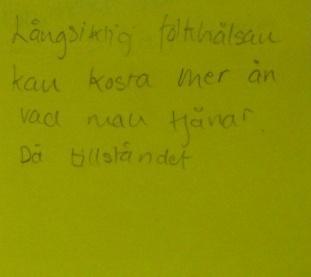 Långsiktig folkhälsan
kan kosta mer än
vad man tjänar.
Då tillståndet